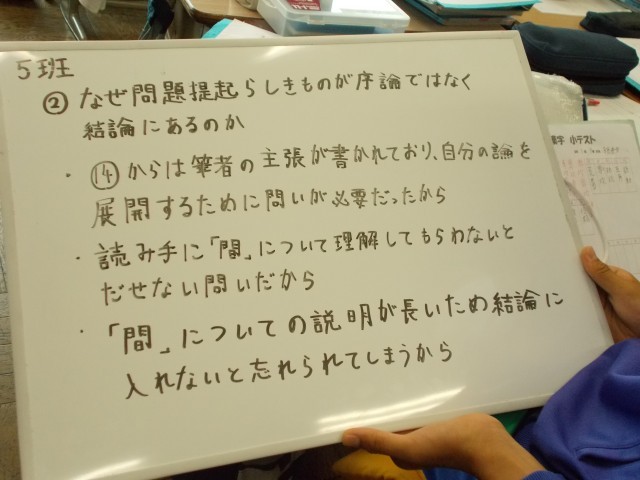 5班
② なぜ問題提起らしきものが序論ではなく
結論にあるのか
・⑭からは筆者の主張が書かれており、自分の論を
展開するために問いが必要だったから
・読み手に「間」について理解してもらわないと
だせない問いだから
・「間」についての説明が長いため結論に
入れないと忘れられてしまうから
小テスト